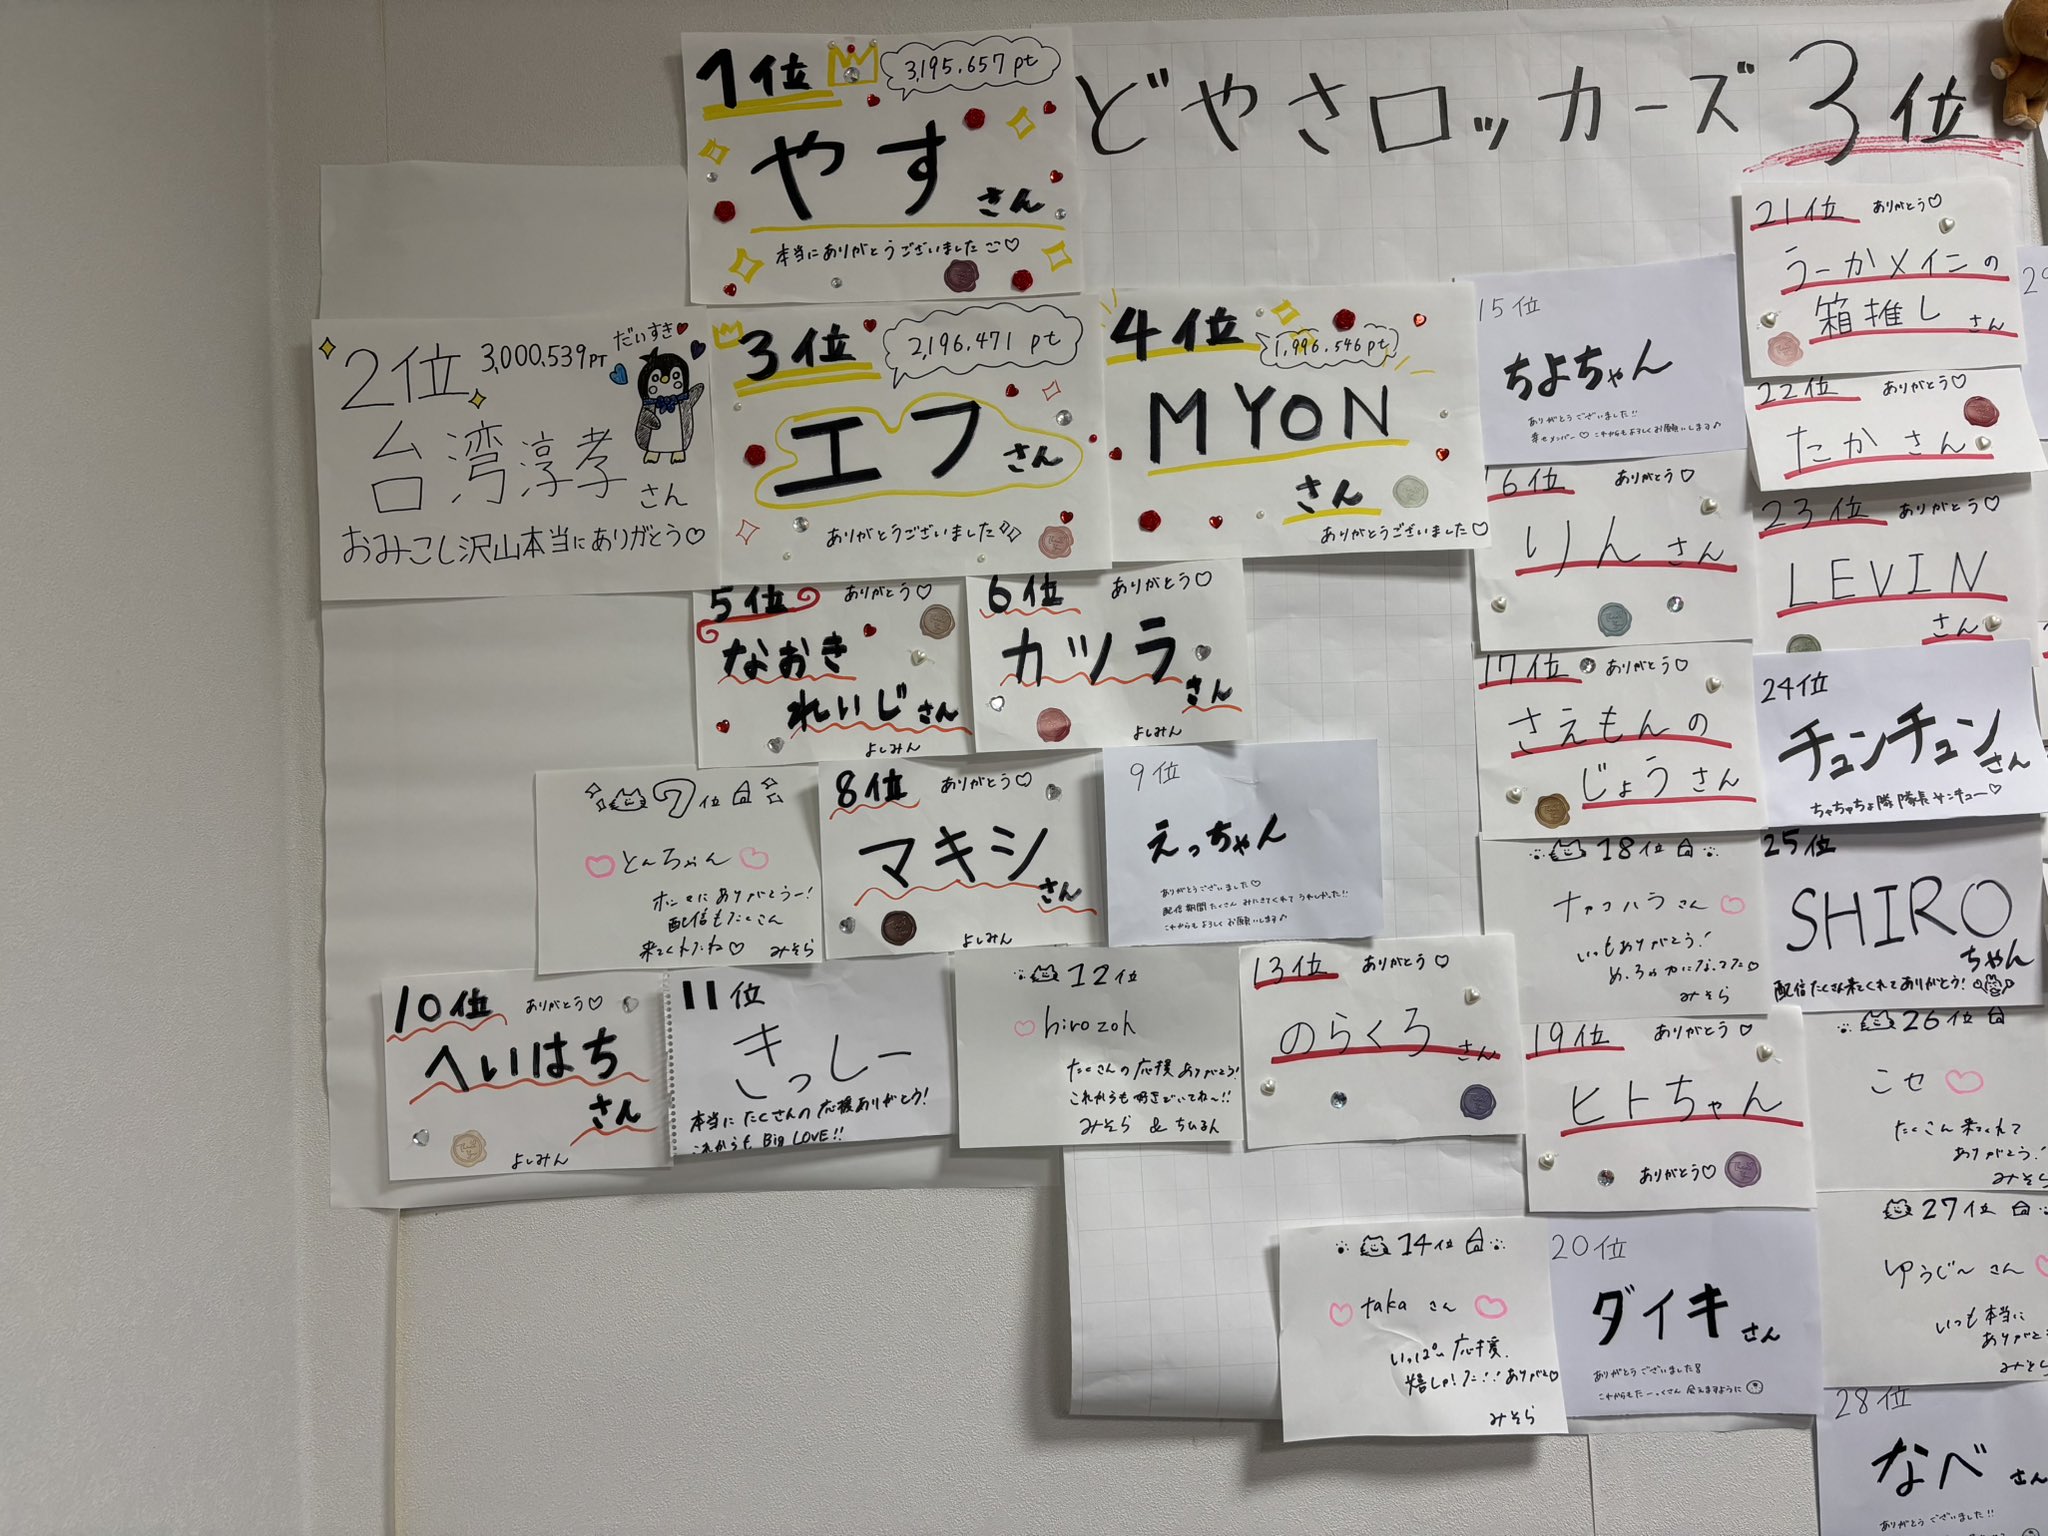 どやさロッカーズ 3位
1位
3,195,657pt
やす
さん
本当にありがとうございました
2位
3,000,539PT
だいすき
台湾淳孝
さん
おみこし沢山本当にありがとう♡
3位
2,196,471 pt
エフ
さん
ありがとうございました
4位
1,996,546pt
MYON
さん
ありがとうございました♡
5位
ありがとう♡
なおき
れいじさん
よしみん
6位
ありがとう♡
カツラ
さん
よしみん
7位
とんちゃん
ホンマにありがとうー!
配信もたくさん
来てくれたね♡ みそら
8位
ありがとう♡
マキシ
さん
よしみん
9位
えっちゃん
ありがとうございました♡
配信期間たくさんみにきてくれてうれしかった!!
これからもよろしくお願いします♪
10位
ありがとう♡
へいはち
さん
よしみん
11位
きっしー
本当にたくさんの応援ありがとう!
これからも Big LOVE!!
12位
hirozoh
たくさんの応援ありがとう!
これからも好きでいてね〜!!
みそら & ちひろん
13位
ありがとう♡
のらくろ
さん
14位
taka さん
いっぱい応援
嬉しかった!!ありがとう♡
みそら
15位
ちよちゃん
ありがとうございました!!
幸せメンバー♡これからもよろしくお願いします♪
16位
ありがとう♡
りん さん
17位
ありがとう♡
さえもんの
じょうさん
18位
ナカハラさん
いつもありがとう!
みそら
19位
ありがとう♡
ヒトちゃん
ありがとう♡
20位
ダイキ
さん
ありがとうございました
これからもたーっくさん会えますように
21位
ありがとう♡
うーかメインの
箱推し さん
22位
ありがとう♡
たかさん
23位
ありがとう♡
LEVIN
さん
24位
チュンチュン
さん
ちゃちゃちょ隊 隊長サンキュー♡
25位
SHIRO
ちゃん
配信たくさん来てくれてありがとう!
26位
こせ
たくさん来てくれて
ありがとう!
みそら
27位
ゆうじ〜さん
いつも本当に
ありがとう
みそら
28位
なべ さん
ありがとうございました!!